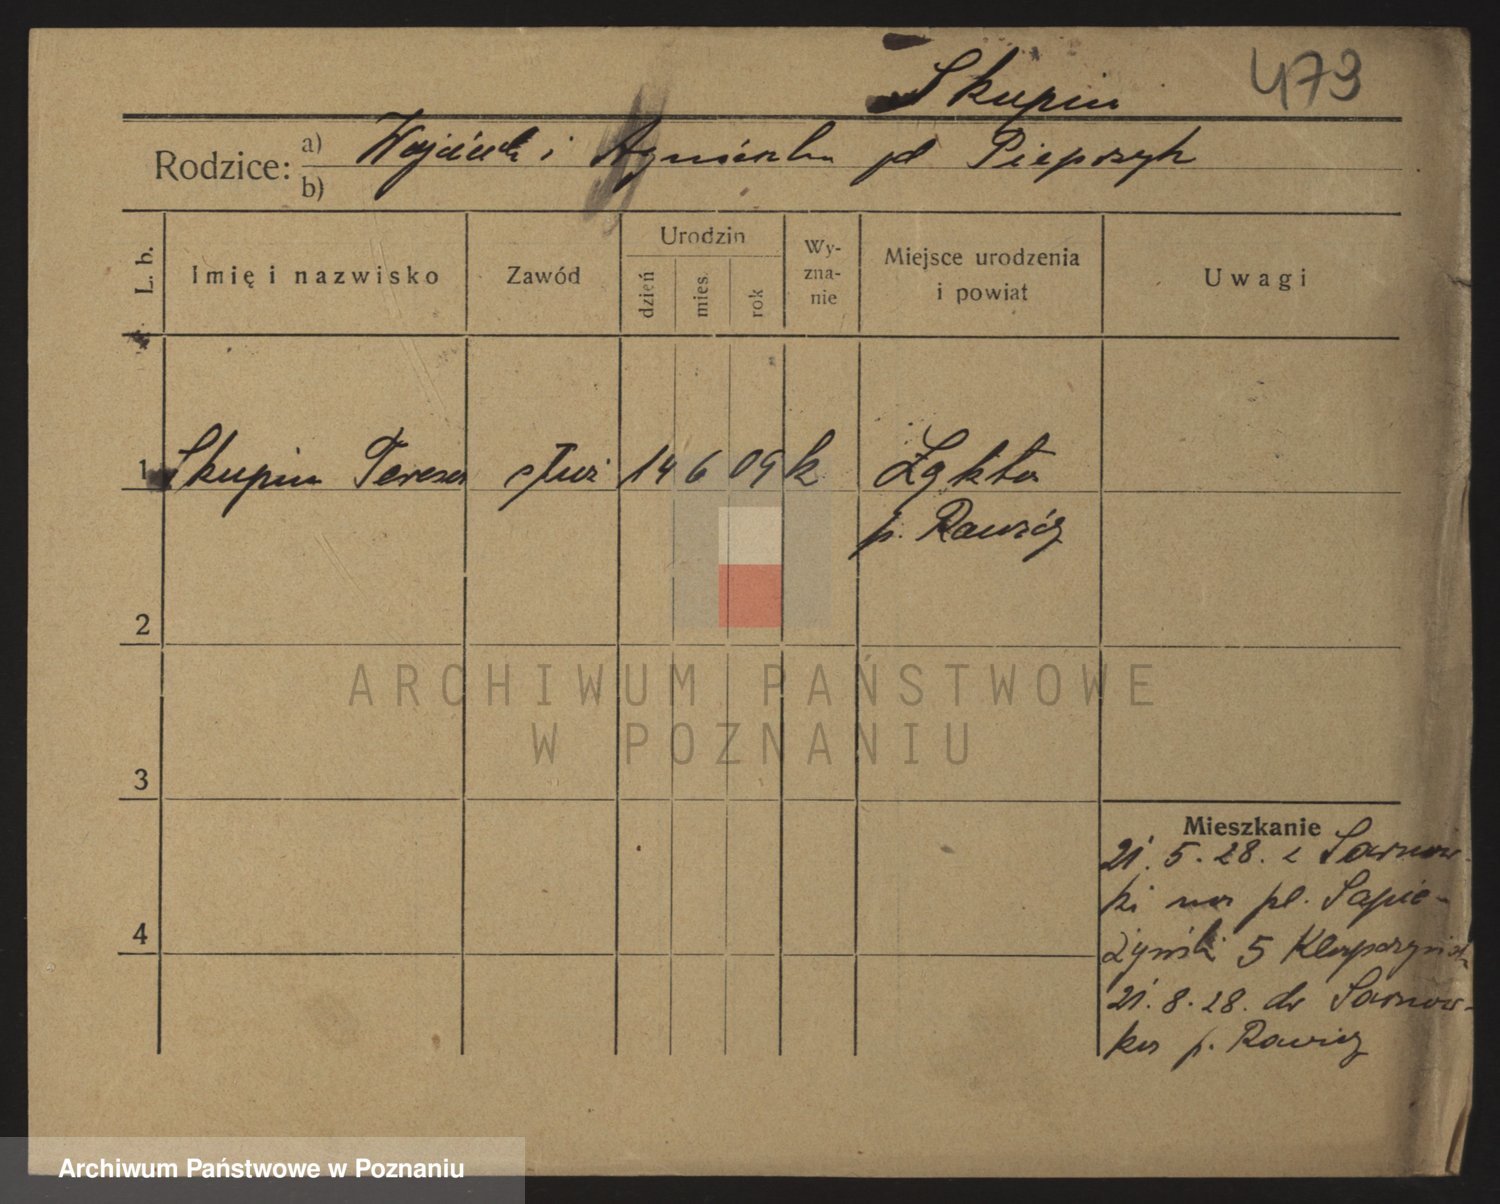 Skupin 473
Rodzice: a) Wojciech i Agnieszka pd Pieprzyk
b)
L. b. Imię i nazwisko Zawód Urodzin dzień mies. rok Wy-zna-nie Miejsce urodzenia i powiat Uwagi
1 Skupin Teresa służ 14 6 09 k
p. Rawicz
2
ARCHIWUM PAŃSTWOWE
W POZNANIU
3
Mieszkanie
21. 5. 28. z Sarnow-
ki na pl. Sapie-
żyński 5
4
21. 8. 28. do Sarnow-
ka p. Rawicz
Archiwum Państwowe w Poznaniu